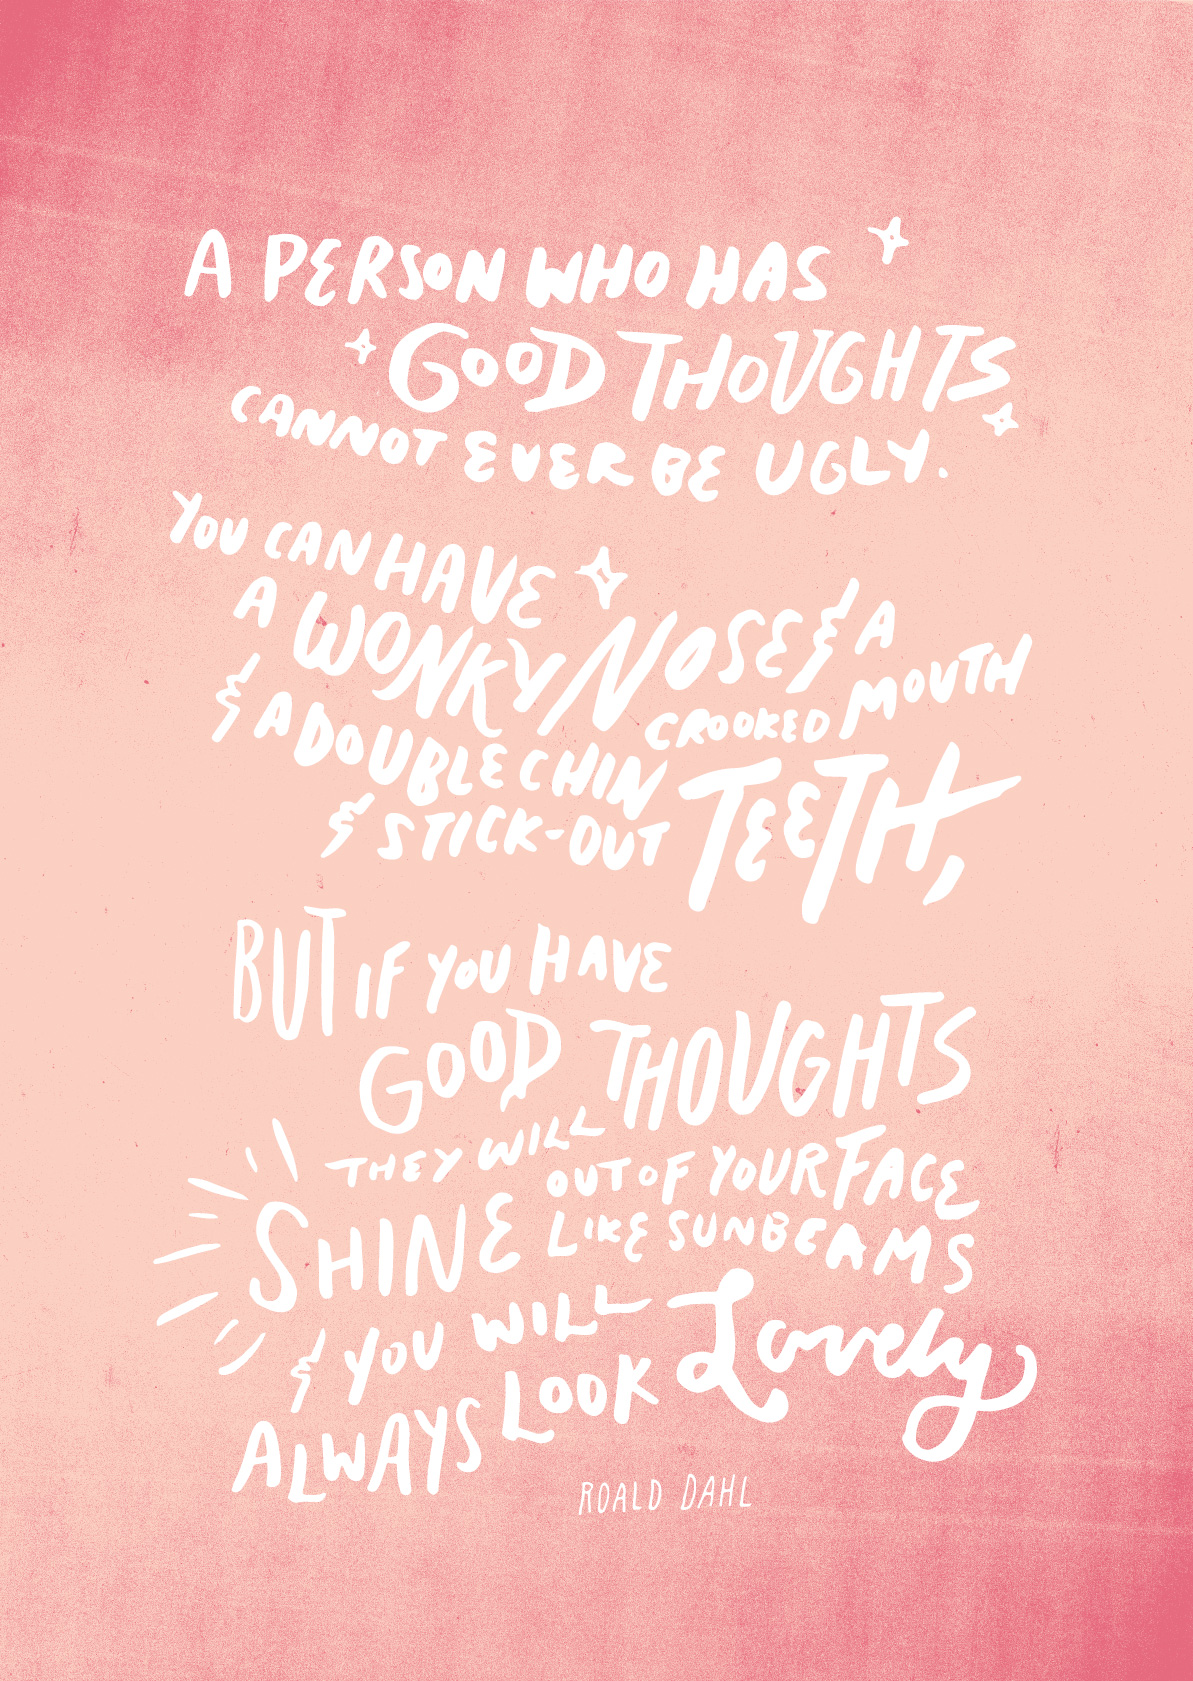 A PERSON WHO HAS
GOOD THOUGHTS
CANNOT EVER BE UGLY.
YOU CAN HAVE
A WONKY NOSE & A
CROOKED MOUTH
& A DOUBLE CHIN
& STICK-OUT TEETH,
BUT IF YOU HAVE
GOOD THOUGHTS
THEY WILL
SHINE OUT OF YOUR FACE
LIKE SUNBEAMS
& YOU WILL
ALWAYS LOOK Lovely
ROALD DAHL